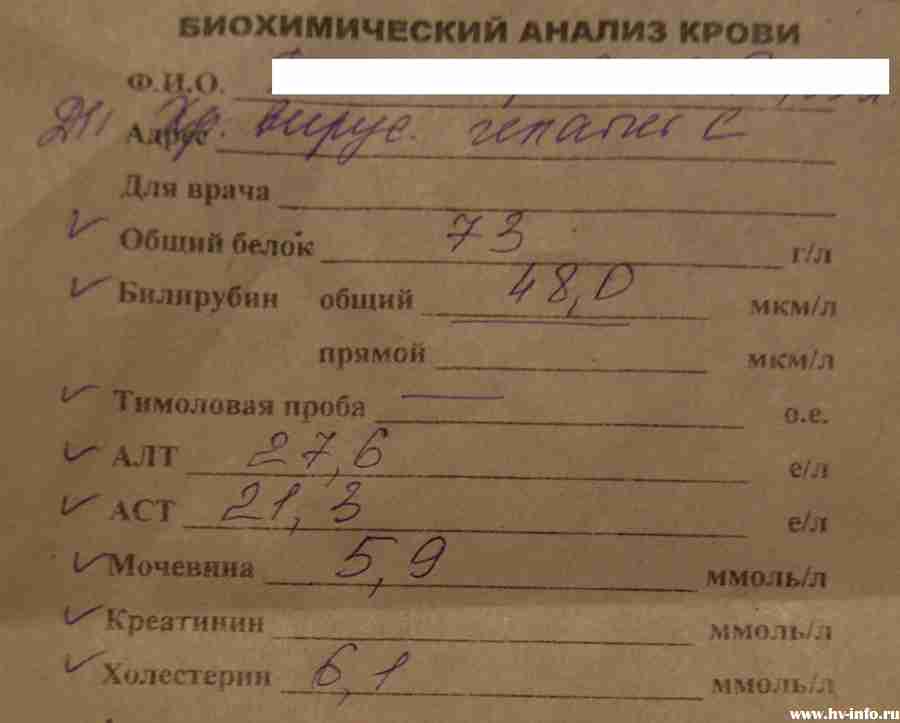 БИОХИМИЧЕСКИЙ АНАЛИЗ КРОВИ
Ф.И.О.
Адрес вирус. гепатит С
Для врача
Общий белок 73 г/л
Билирубин общий 48,0 мкм/л
прямой мкм/л
Тимоловая проба — о.е.
АЛТ 27,6 е/л
АСТ 21,3 е/л
Мочевина 5,9 ммоль/л
Креатинин ммоль/л
Холестерин 6,1 ммоль/л
www.hv-info.ru